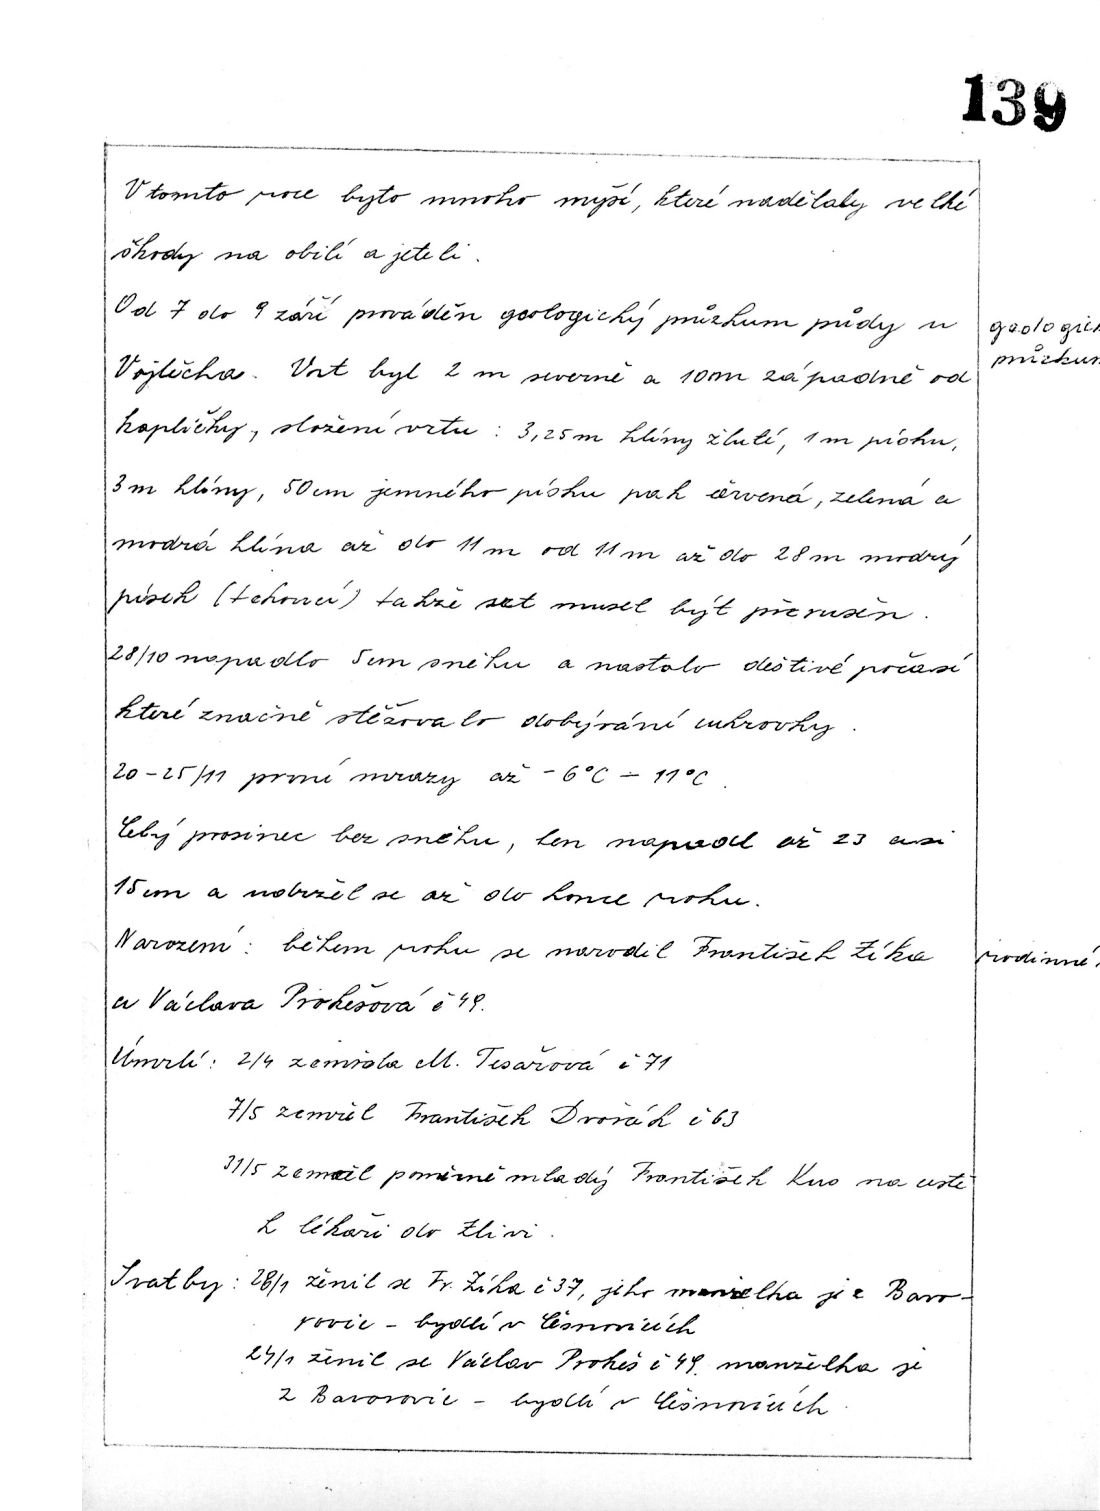 139
V tomto roce bylo mnoho myší, které nadělaly velké
škody na obilí a jeteli.
Od 7 do 9 září prováděn geologický průzkum půdy u
geologick
průzkum
Vojtěcha. Vrt byl 2 m severně a 10m západně od
kapličky, složení vrtu: 3,25m hlíny žluté, 1m písku,
3m hlíny, 50cm jemného písku pak červená, zelená a
modrá hlína až do 11m od 11m až do 28m modrý
písek (tekoucí) takže musel být přerušěn.
28/10 napadlo 5cm sněhu a nastalo deštivé počasí
které značně stěžovalo dobývání cukrovky.
20-25/11 první mrazy až -6°C - 11°C.
Celý prosinec bez sněhu, ten napadl až 23 asi
15cm a udržel se až do konce roku.
Narození: během roku se narodil František Zíka
rodinné
a Václava Prokešová č 49.
Úmrtí: 2/4 zemřela M. Tesařová č 71
7/5 zemřel František Dvořák č 63
31/5 zemřel poměrně mladý František Kuo na cestě
k lékaři do Zlivi.
Svatby: 28/1 ženil se Fr. Zíka č 37, jeho manželka je z Bavo-
rovic - bydlí v Češnovicích
24/1 ženil se Václav Prokeš č 49. manželka je
z Bavorovic - bydlí v Češnovicích.